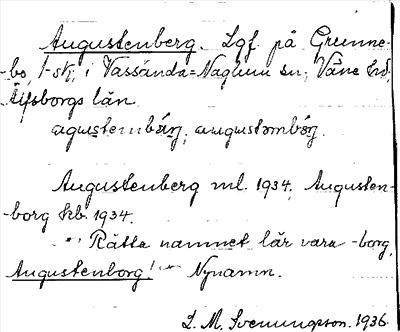 Augustenberg. Lgf. på Grunne-
-bo, 1/2 sk, i Vassända=Naglum sn, Väne hd,
Älfsborgs län.
agustembärj, augustombärj.
Augustenberg ml. 1934, Augusten-
-borg kb. 1934.
"Rätta namnet lär vara -borg,
Augustenborg!" Nynamn.
L. M. Svenungsson. 1936